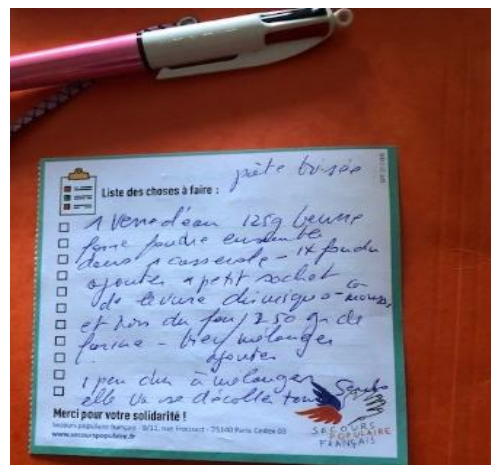 pâte brisée
Liste des choses à faire :
1 verre d'eau 125g beurre
faire fondre ensemble
dans 1 casserole - 1x fondu
ajouter 1 petit sachet
de levure chimique - ça mousse
et hors du feu / 250 gr de
farine - bien mélanger
ajouter
1 peu dur à mélanger
elle va se décoller
Merci pour votre solidarité !
Secours populaire français - 9/11, rue Froissart - 75140 Paris Cedex 03
www.secourspopulaire.fr
SECOURS
POPULAIRE
FRANÇAIS